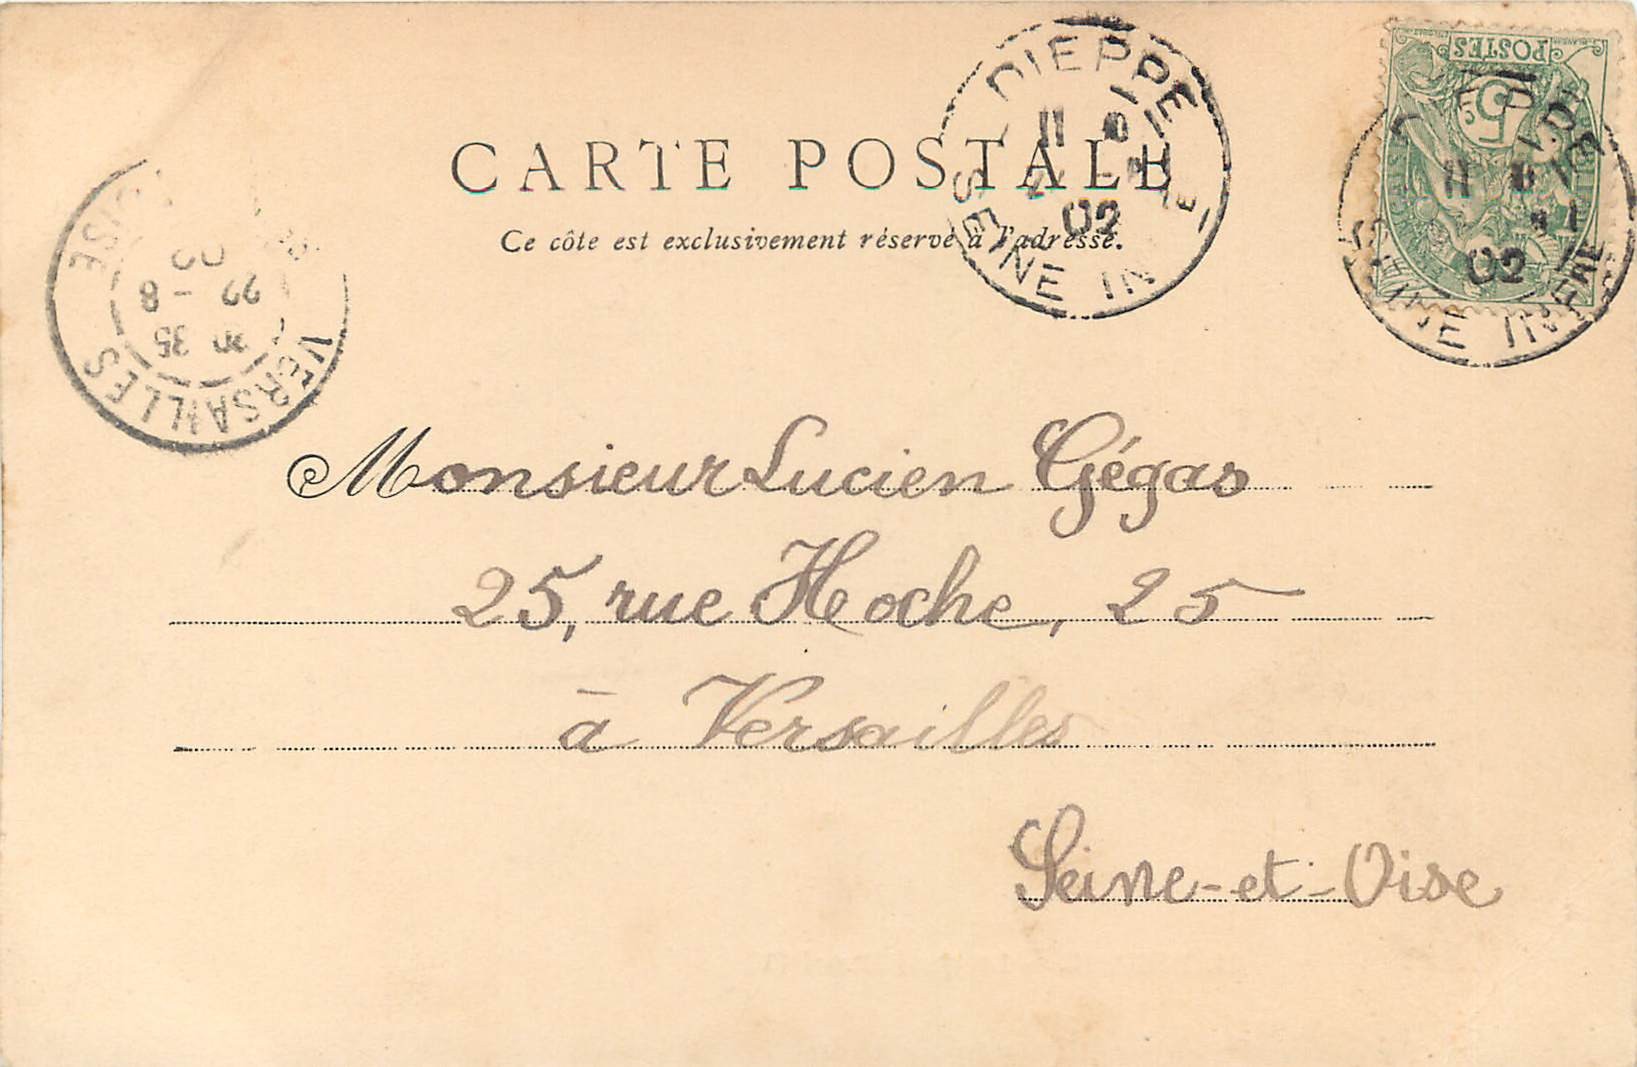 CARTE POSTALE
Ce côte est exclusivement réservé à l'adresse.
DIEPPE
02
SEINE INF
POSTES
5
02
SEINE INFRE
VERSAILLES
35
22 - 8
OISE
Monsieur Lucien Gégas
25, rue Hoche, 25
à Versailles
Seine-et-Oise